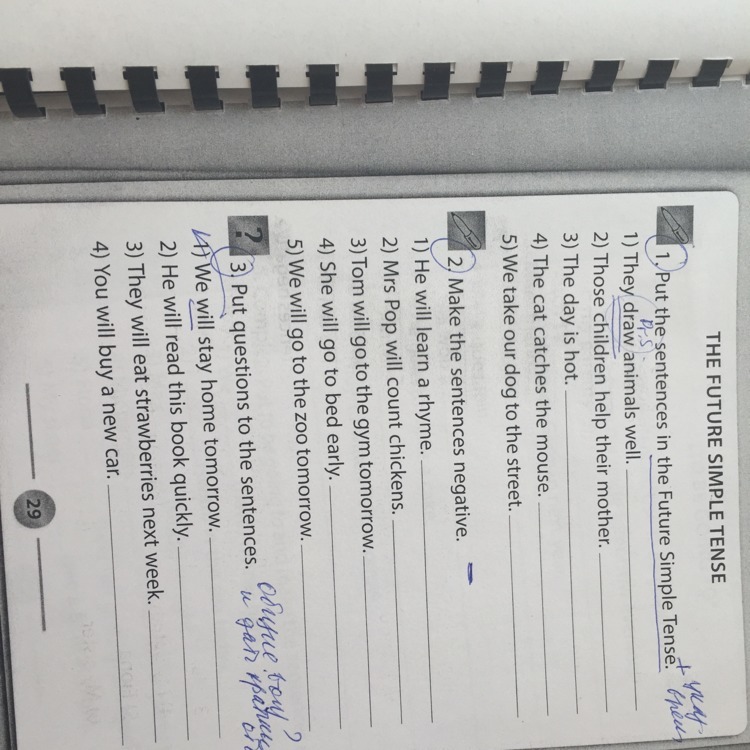 THE FUTURE SIMPLE TENSE
1. Put the sentences in the Future Simple Tense. +
Pr.S.
1) They draw animals well.
2) Those children help their mother.
3) The day is hot.
4) The cat catches the mouse.
5) We take our dog to the street.
2) Make the sentences negative. –
1) He will learn a rhyme.
2) Mrs Pop will count chickens.
3) Tom will go to the gym tomorrow.
4) She will go to bed early.
5) We will go to the zoo tomorrow.
? 3) Put questions to the sentences.
общие ?
и дать
1) We will stay home tomorrow.
2) He will read this book quickly.
3) They will eat strawberries next week.
4) You will buy a new car.
29